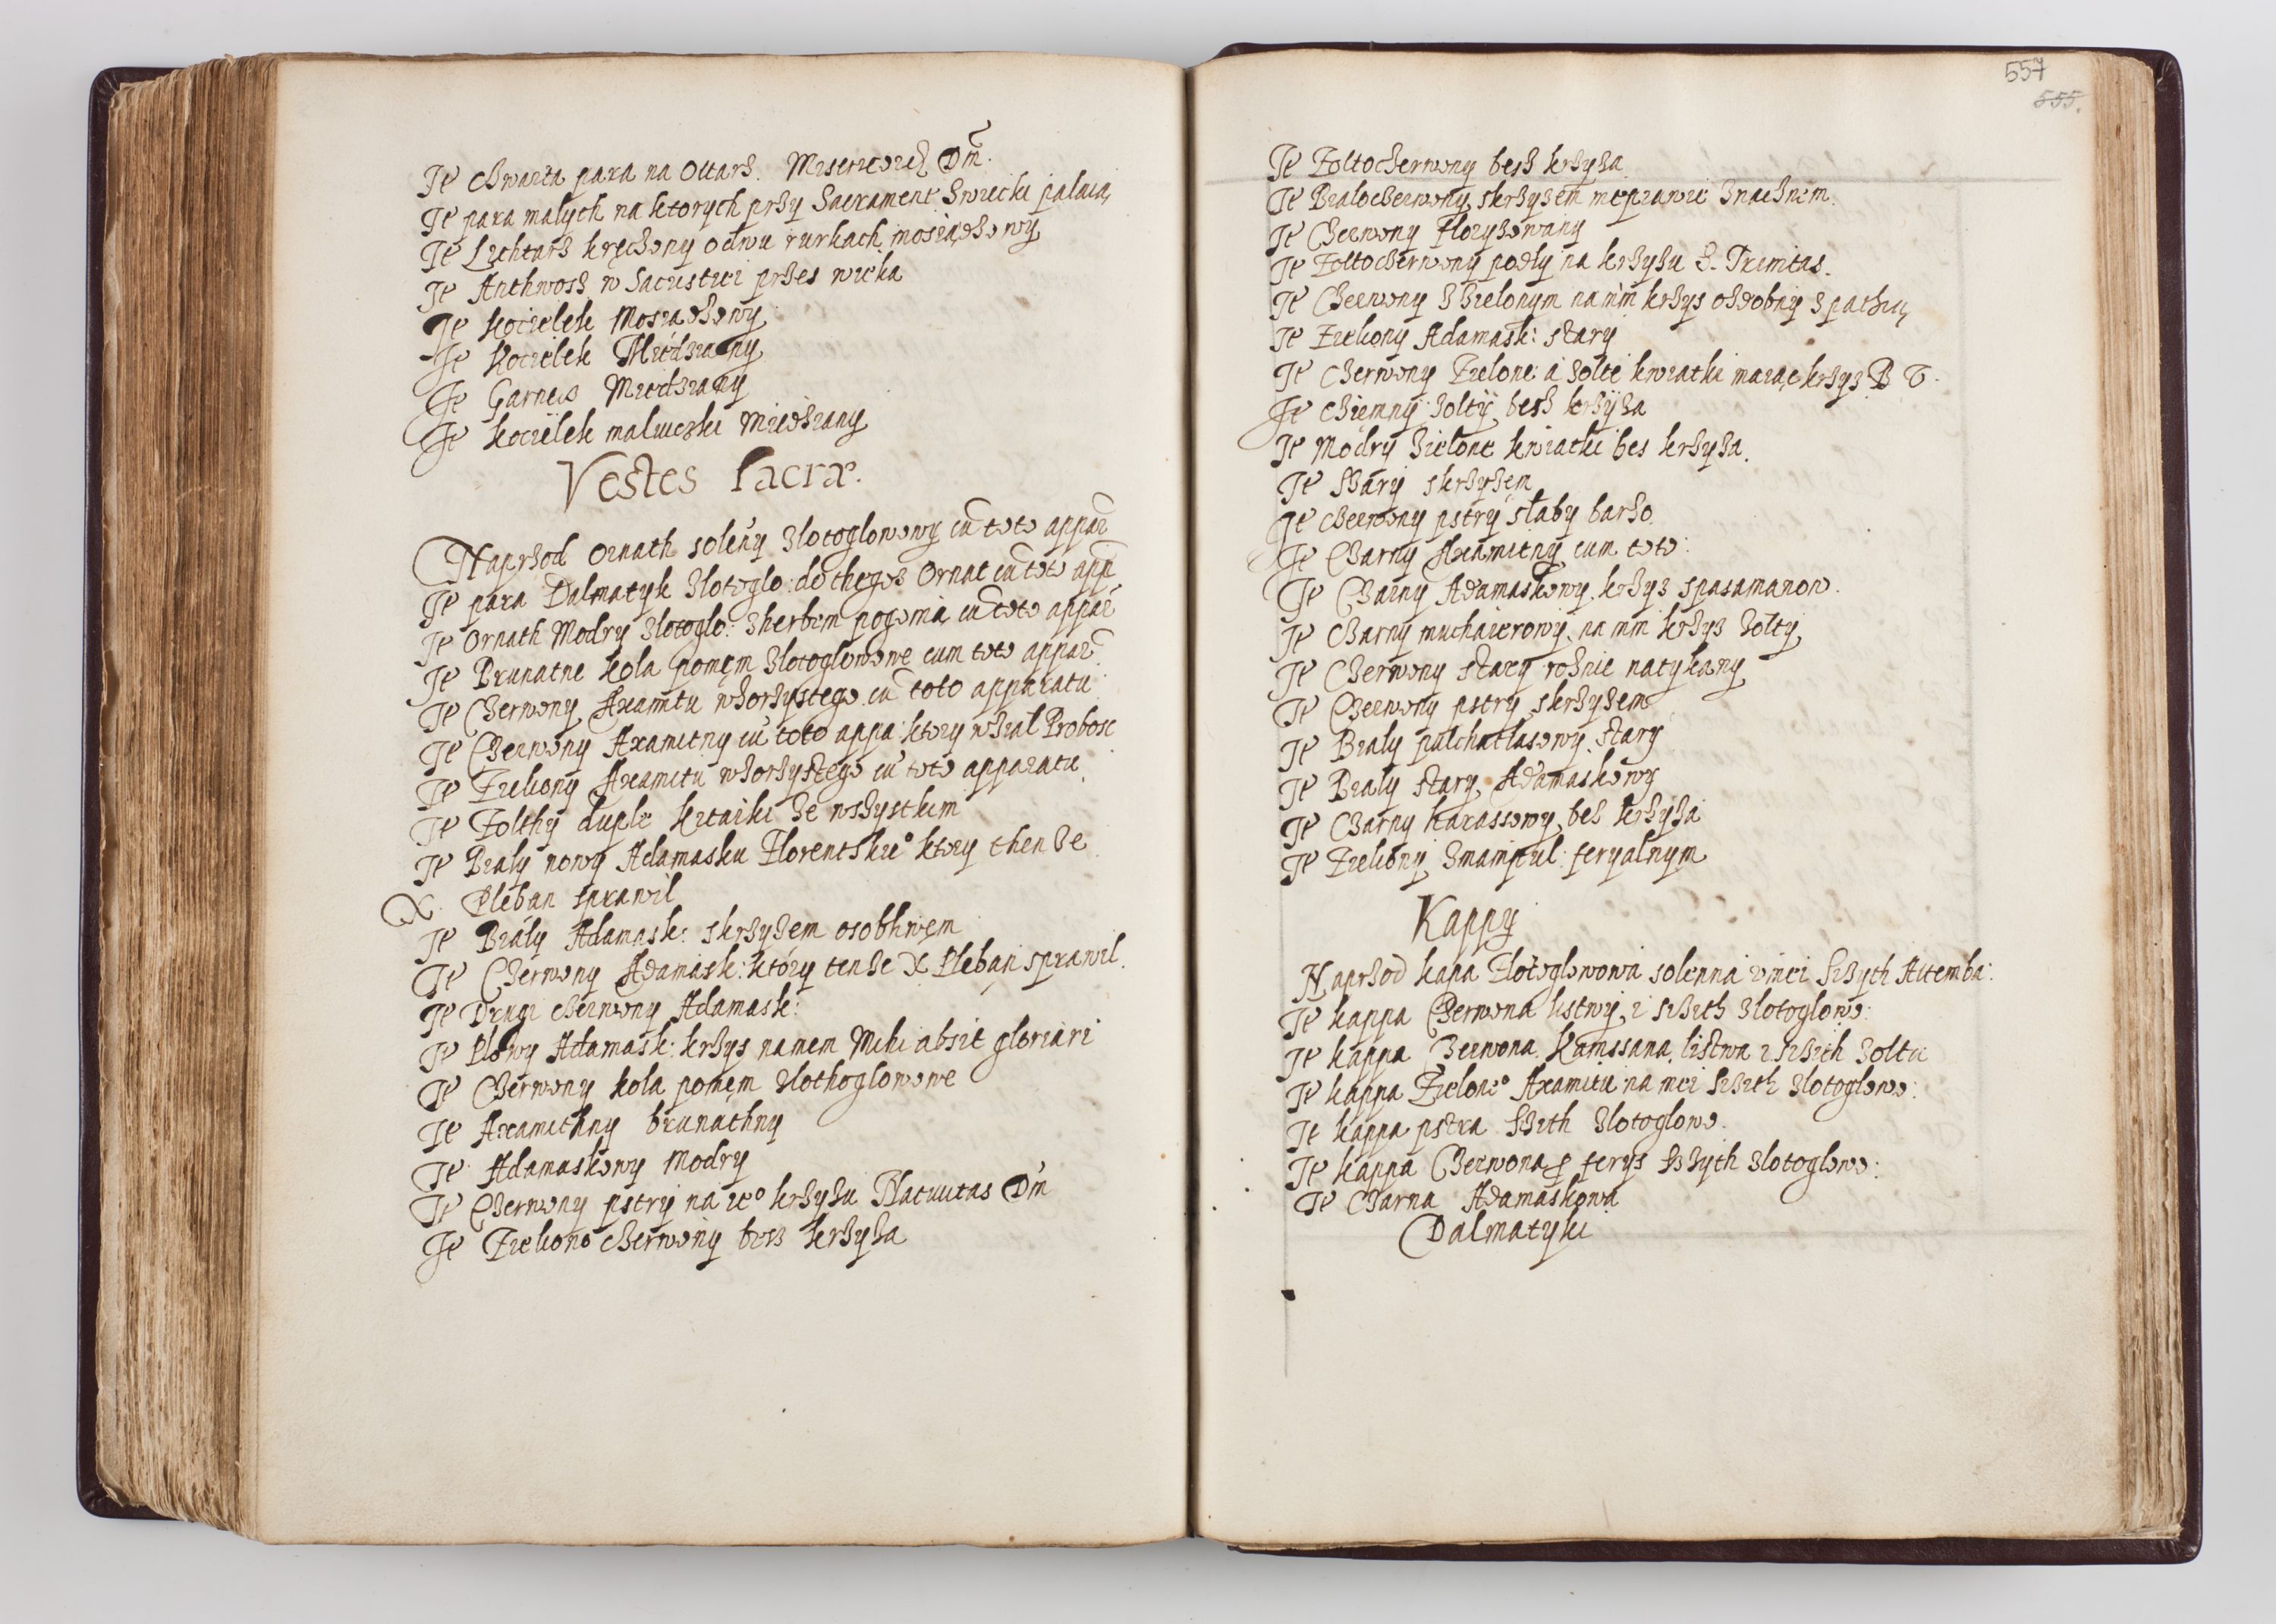 It czwarta para na Ottarz. Misericordiæ Dm̃.
It para malych na ktorych przy Sacrament Swiecki palaią
It Lichtarz kręczony odwu rurkach mosiądzowy
It Anthwosz w Sacristiei przes wieka
It Kocielek Mosiadzowy
It Kocielek Miedziany
It Garniec Miedziany
It kocielek maluczki Miedziany
Vestes Sacræ.
Naprzod Ornath solẽny zlotoglowowy cũ toto appar
It para Dalmatyk zlotoglo: do thegoz Ornat cũ toto app
It Ornath Modry zlotoglo: zherbem pogonia cũ toto appar
It Brunatne kola pomęm zlotoglowowe cum toto appar
It Czerwony Axamitu wzorzystego cũ toto apparatu
It Czerwony Axamitny cũ toto appa: ktory wzial Probosc
It Zieliony Axamitu wzorzystego cũ toto apparatu
It Zolthy duple kitaiki ze wszystkim
It Bialy nowy Adamasku Florentskie° ktory then ze
X. Pleban sprawil
It Biały Adamask: skrzyżem osobliwęm
It Czerwony Adamask: ktory tenze X Pleban sprawil.
It Drugi czerwony Adamask:
It Plowy Adamask: krzys namem Mihi absit gloriari
It Czerwony kola pomęm zlothoglowowe
It Axamithny brunathny
It Adamaskowy Modry
It Czerwony pstry na ie° krzyżu Nativitas Dm̃
It Zieliono czerwony bez krzyża
557
555.
It Zoltoczerwony besz krzyża.
It Bialoczerwony skrzyżem nieprawie znacznem.
It Czerwony Floryzowany
It Zoltoczerwony podły na krzyżu S. Trinitas.
It Czerwony z zielonym na nim krzys ozdobny
It Zieliony Adamask: stary
It Czerwony Zielone a zolte kwiatki maiąc krzyz B V.
It Ciemny zolty besz krzyża
It Modry zielone kwiatki bes krzyża.
It Szary skrzyżem
It Czerwony pstry słaby barzo
It Czarny Axamitny cum toto:
It Czarny Adamaskowy krzyz spasamanow.
It Czarny muchaierowy, na nim krzyz zolty
It Czerwony stary rożnie natykany
It Czerwony pstry skrzyżem
It Bialy pulchatlasowy stary
It Bialy stary Adamaskowy
It Czarny harassowy, bez krzyża
It Zieliony zmanipul: feryalnym
Kappy
Naprzod kapa Zlotoglowowa solenna
It kappa Czerwona listwy, i szzith zlotoglowo:
It kappa Czerwona Kamssana listwa i szzith
It kappa Zielone° Axamitu na niei szzith zlotoglowo:
It kappa pstra szzith zlotoglowo.
It kappa Czerwona ꝑ ferys szzyth zlotoglowo:
It Czarna Adamaskowa
Dalmatyki